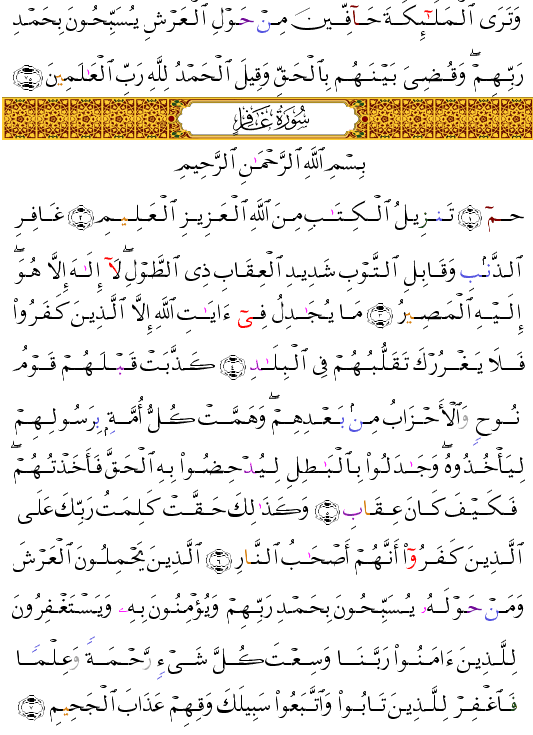 وَتَرَى ٱلْمَلَـٰٓئِكَةَ حَآفِّينَ مِنْ حَوْلِ ٱلْعَرْشِ يُسَبِّحُونَ بِحَمْدِ
رَبِّهِمْ ۖ وَقُضِىَ بَيْنَهُم بِٱلْحَقِّ وَقِيلَ ٱلْحَمْدُ لِلَّهِ رَبِّ ٱلْعَـٰلَمِينَ ٧٥
سُورَةُ غَافِرٍ
بِسْمِ ٱللَّهِ ٱلرَّحْمَـٰنِ ٱلرَّحِيمِ
حمٓ ١ تَنزِيلُ ٱلْكِتَـٰبِ مِنَ ٱللَّهِ ٱلْعَزِيزِ ٱلْعَلِيمِ ٢ غَافِرِ
ٱلذَّنۢبِ وَقَابِلِ ٱلتَّوْبِ شَدِيدِ ٱلْعِقَابِ ذِى ٱلطَّوْلِ ۖ لَآ إِلَـٰهَ إِلَّا هُوَ ۖ
إِلَيْهِ ٱلْمَصِيرُ ٣ مَا يُجَـٰدِلُ فِىٓ ءَايَـٰتِ ٱللَّهِ إِلَّا ٱلَّذِينَ كَفَرُوا۟
فَلَا يَغْرُرْكَ تَقَلُّبُهُمْ فِى ٱلْبِلَـٰدِ ٤ كَذَّبَتْ قَبْلَهُمْ قَوْمُ
نُوحٍ وَٱلْأَحْزَابُ مِنۢ بَعْدِهِمْ ۖ وَهَمَّتْ كُلُّ أُمَّةٍۭ بِرَسُولِهِمْ
لِيَأْخُذُوهُ ۖ وَجَـٰدَلُوا۟ بِٱلْبَـٰطِلِ لِيُدْحِضُوا۟ بِهِ ٱلْحَقَّ فَأَخَذْتُهُمْ ۖ
فَكَيْفَ كَانَ عِقَابِ ٥ وَكَذَٰلِكَ حَقَّتْ كَلِمَتُ رَبِّكَ عَلَى
ٱلَّذِينَ كَفَرُوٓا۟ أَنَّهُمْ أَصْحَـٰبُ ٱلنَّارِ ٦ ٱلَّذِينَ يَحْمِلُونَ ٱلْعَرْشَ
وَمَنْ حَوْلَهُۥ يُسَبِّحُونَ بِحَمْدِ رَبِّهِمْ وَيُؤْمِنُونَ بِهِۦ وَيَسْتَغْفِرُونَ
لِلَّذِينَ ءَامَنُوا۟ رَبَّنَا وَسِعْتَ كُلَّ شَىْءٍ رَّحْمَةً وَعِلْمًا
فَٱغْفِرْ لِلَّذِينَ تَابُوا۟ وَٱتَّبَعُوا۟ سَبِيلَكَ وَقِهِمْ عَذَابَ ٱلْجَحِيمِ ٧